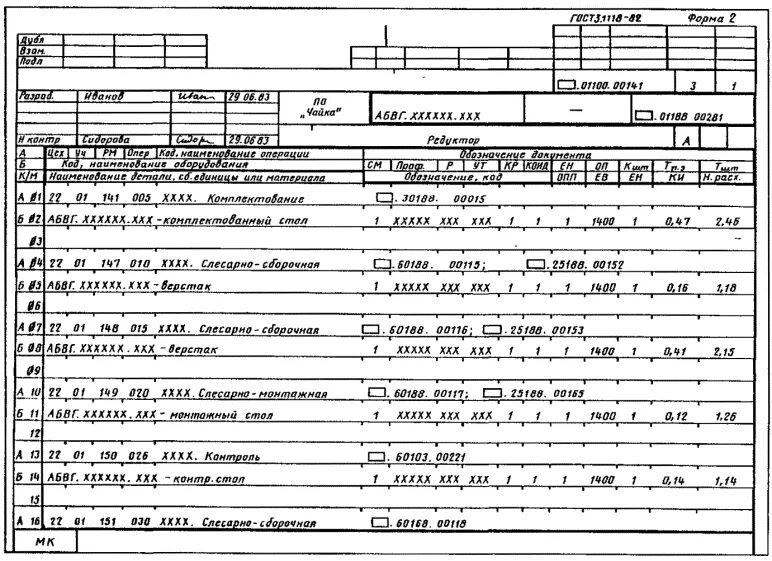 ГОСТ 3.1118-82 Форма 2
Дубл.
Взам.
Подл.
.01100.00141 3 1
Разраб. Иванов Иван 29.06.83
ПО "Чайка"
АБВГ.XXXXXX.XXX — .01188 00281
Н контр Сидорова Сидор 29.06.83 Редуктор А
А Цех Уч РМ Опер Код, наименование операции Обозначение документа
Б Код, наименование оборудования СМ Проф. Р УТ КР КОИД ЕН ОП К шт Тп.з Тшт
К/М Наименование детали, сб. единицы или материала Обозначение, код ОПП ЕВ ЕН КИ Н. расх.
А 01 22 01 141 005 XXXX. Комплектование .30188. 00015
Б 02 АБВГ.XXXXXX.XXX-комплектованный стол 1 XXXXX XXX XXX 1 1 1 1400 1 0,47 2,46
03
А 04 22 01 147 010 XXXX. Слесарно-сборочная .60188. 00115; .25188. 00152
Б 05 АБВГ.XXXXXX.XXX-верстак 1 XXXXX XXX XXX 1 1 1 1400 1 0,16 1,18
06
А 07 22 01 148 015 XXXX. Слесарно-сборочная .60188. 00116; .25188. 00153
Б 08 АБВГ.XXXXXX.XXX-верстак 1 XXXXX XXX XXX 1 1 1 1400 1 0,41 2,15
09
А 10 22 01 149 020 XXXX. Слесарно-монтажная .60188. 00117; .25188. 00165
Б 11 АБВГ.XXXXXX.XXX-монтажный стол 1 XXXXX XXX XXX 1 1 1 1400 1 0,12 1,26
12
А 13 22 01 150 026 XXXX. Контроль .60103. 00221
Б 14 АБВГ.XXXXXX.XXX-контр. стол 1 XXXXX XXX XXX 1 1 1 1400 1 0,14 1,14
15
А 16 22 01 151 030 XXXX. Слесарно-сборочная .60168. 00118
МК